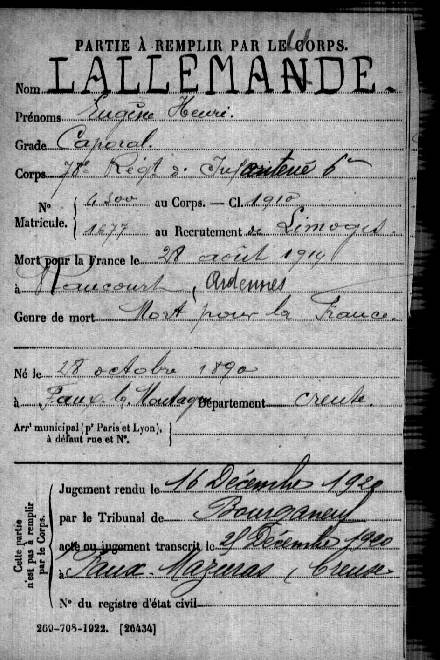 PARTIE À REMPLIR PAR LE CORPS.
Nom LALLEMANDE.
Prénoms Eugène Henri.
Grade Caporal.
Corps 78e Régt d'Infanterie 6e
No 4300 au Corps. — Cl. 1910
Matricule. 1677 au Recrutement de Limoges
Mort pour la France le 28 août 1914
à Raucourt, Ardennes
Genre de mort Mort pour la France.
Né le 28 octobre 1890
à Faux la Montagne Département Creuse.
Arrt municipal (pr Paris et Lyon),
à défaut rue et No.
Cette partie
n'est pas à remplir
par le Corps.
Jugement rendu le 16 Décembre 1920
par le Tribunal de Bourganeuf
acte ou jugement transcrit le 25 Décembre 1920
à Faux-Mazuras Creuse
No du registre d'état civil
269-708-1922. [26434]